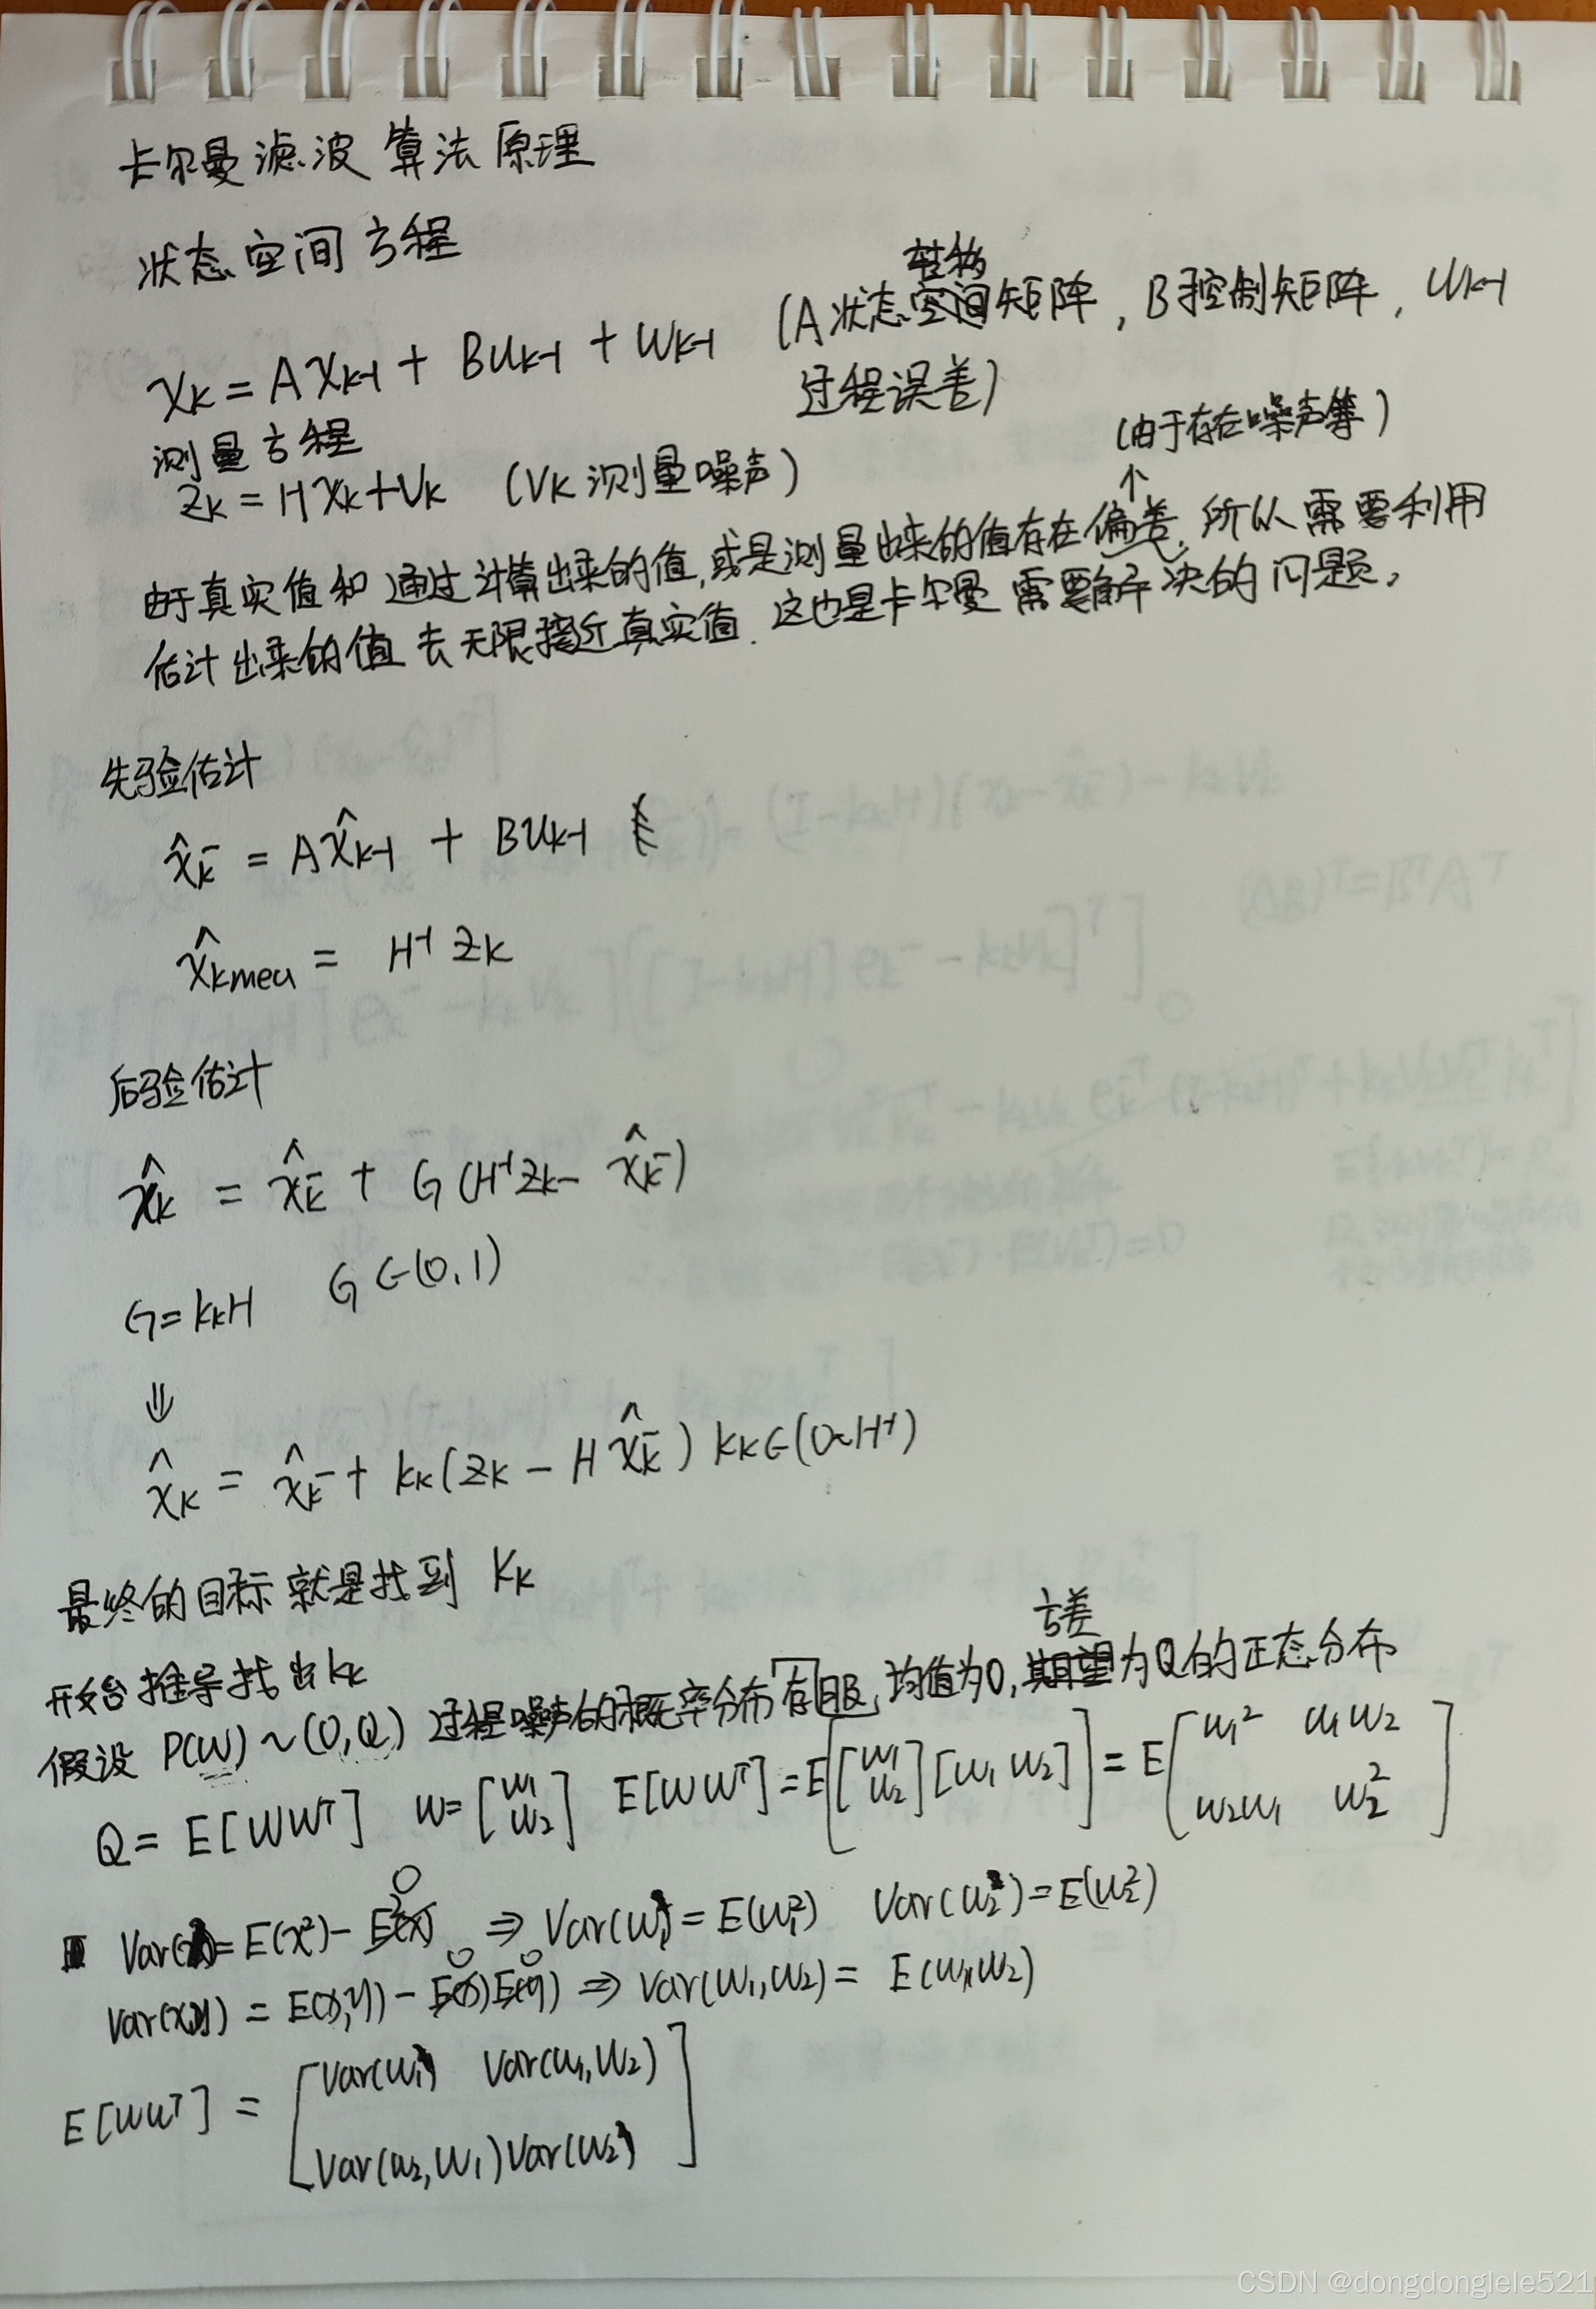 卡尔曼滤波算法原理
状态空间方程
转移
x̂k = Axk-1 + Buk-1 + wk-1 (A状态空间矩阵, B控制矩阵, wk-1
过程误差)
测量方程
(由于存在噪声等)
↑
zk = Hxk + vk (vk测量噪声)
由于真实值和通过计算出来的值,或是测量出来的值存在偏差,所以需要利用
估计出来的值去无限接近真实值.这也是卡尔曼需要解决的问题。
先验估计
x̂k⁻ = Ax̂k-1 + Buk-1
x̂kmea = H⁻¹zk
后验估计
x̂k = x̂k⁻ + G(H⁻¹zk - x̂k⁻)
G = kkH G∈(0,1)
⇓
x̂k = x̂k⁻ + kk(zk - Hx̂k⁻) kk∈(0~H⁻¹)
最终的目标就是找到 Kk
开始推导找出kk
方差
假设 P(w)~(0,Q) 过程噪声的概率分布服,均值为0,期望为Q的正态分布
Q = E[wwᵀ] w=[w1 w2] E[wwᵀ]=E[[w1 w2][w1 w2]]=E[w1² w1w2
w2w1 w2²]
Var(x)=E(x²)-E²(x) 0 ⇒ Var(w1)=E(w1²) Var(w2)=E(w2²)
Var(x,y) = E(x,y) - E(x)E(y) 0 0 ⇒ Var(w1,w2) = E(w1,w2)
E[wwᵀ] = [Var(w1) Var(w1,w2)
Var(w2,w1) Var(w2)]
CSDN @dongdonglele521